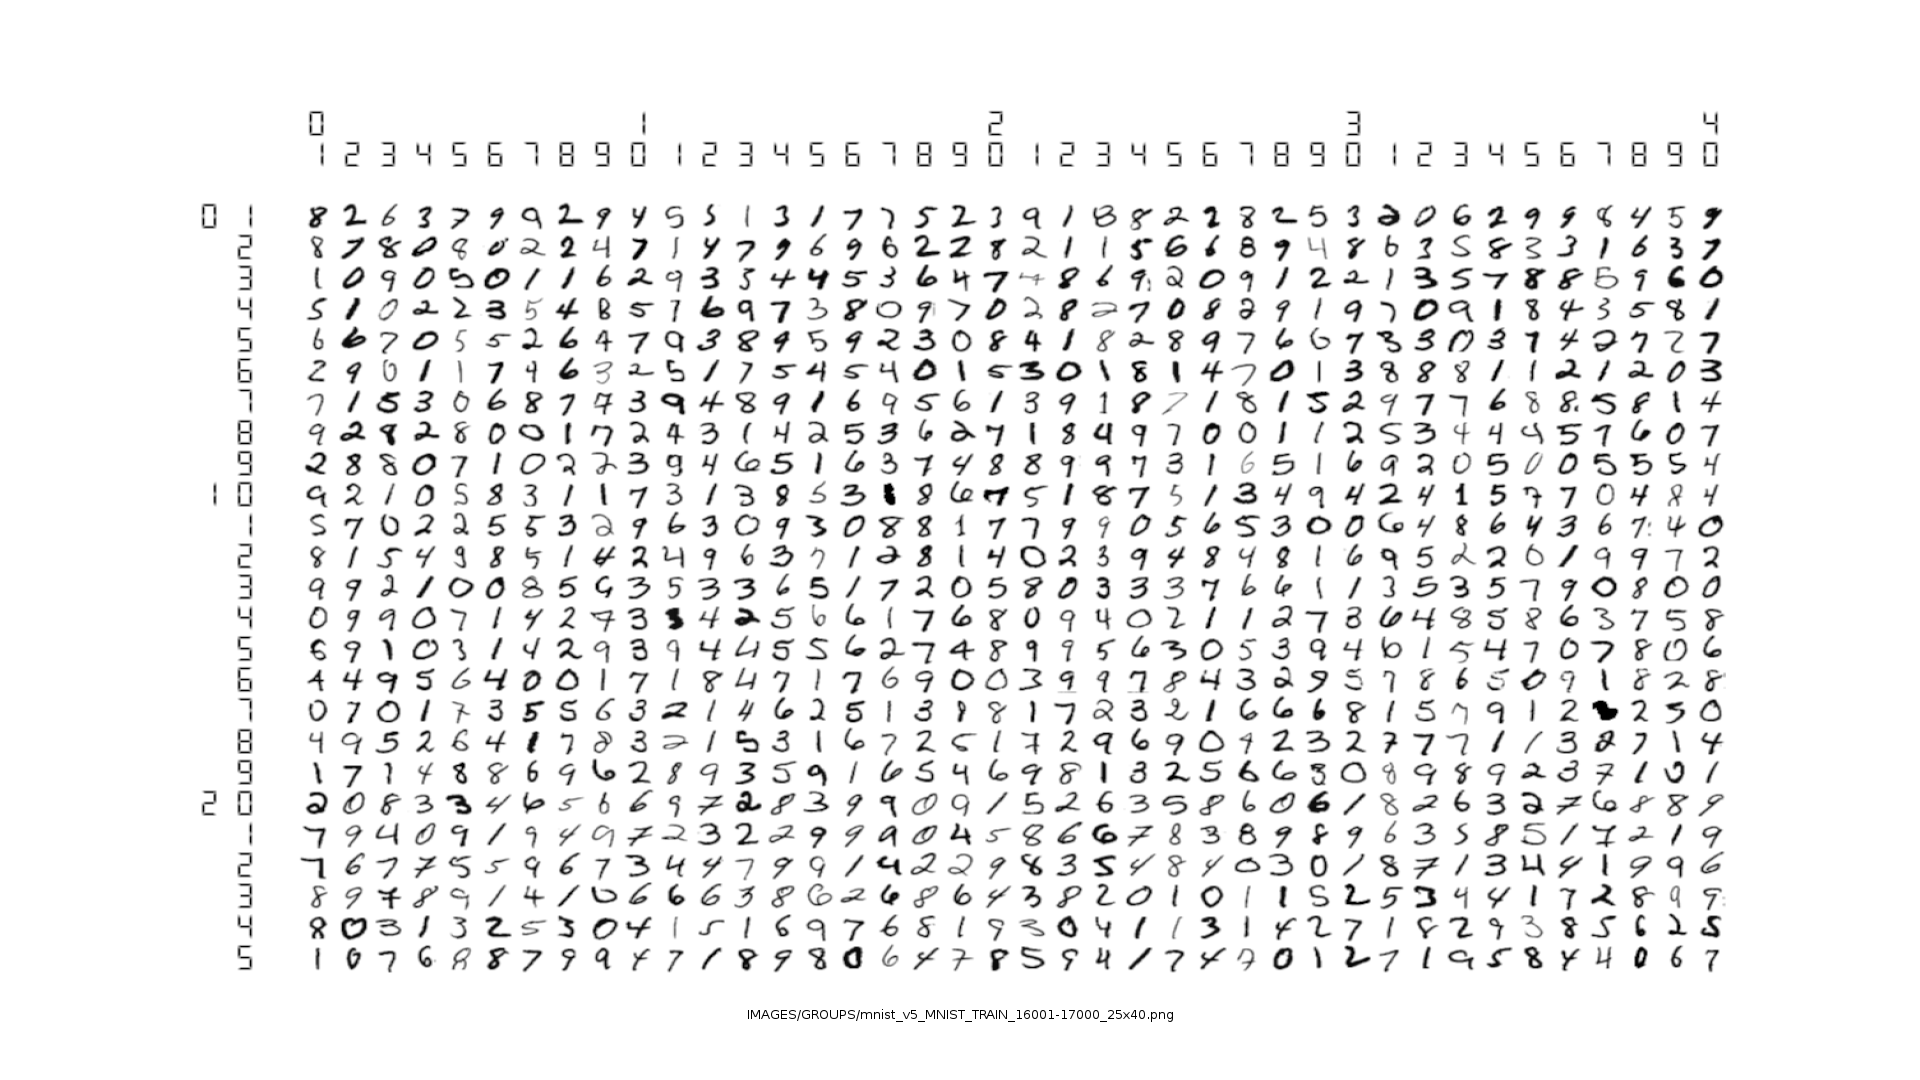 0 1 2 3 4
1 2 3 4 5 6 7 8 9 0 1 2 3 4 5 6 7 8 9 0 1 2 3 4 5 6 7 8 9 0 1 2 3 4 5 6 7 8 9 0
0 1 8 2 6 3 7 9 9 2 9 4 5 5 1 3 1 7 7 5 2 3 9 1 8 8 2 2 8 2 5 3 2 0 6 2 9 9 8 4 5 9
2 8 7 8 0 8 0 2 2 4 7 1 4 7 9 6 9 8 2 2 8 2 1 1 5 6 6 8 9 4 8 6 3 5 8 3 3 1 6 3 7
3 1 0 9 0 5 0 1 1 6 2 9 3 3 4 4 5 3 6 4 7 4 8 6 9 2 0 9 1 2 2 1 3 5 7 8 8 5 9 6 0
4 5 1 0 2 2 3 5 4 8 5 7 6 9 7 3 8 0 9 7 0 2 8 2 7 0 8 2 9 1 9 7 0 9 1 8 4 3 5 8 1
5 6 6 7 0 5 5 2 6 4 7 9 3 8 9 5 9 2 3 0 8 4 1 8 2 8 9 7 6 6 7 3 3 0 3 7 4 2 7 7 7
6 2 9 0 1 1 7 4 6 3 2 5 1 7 5 4 5 4 0 1 5 3 0 1 8 1 4 7 0 1 3 8 8 8 1 1 2 1 2 0 3
7 7 1 5 3 0 6 8 7 7 3 9 4 8 9 1 6 9 5 6 1 3 9 1 8 7 1 8 1 5 2 9 7 7 6 8 8 5 8 1 4
8 9 2 8 2 8 0 0 1 7 2 4 3 1 4 2 5 3 6 2 7 1 8 4 9 7 0 0 1 1 2 5 3 4 4 4 5 7 6 0 7
9 2 8 8 0 7 1 0 2 2 3 9 4 6 5 1 6 3 7 4 8 8 9 9 7 3 1 6 5 1 6 9 2 0 5 0 0 5 5 5 4
1 0 9 2 1 0 5 8 3 1 1 7 3 1 3 8 5 3 1 8 6 7 5 1 8 7 5 1 3 4 9 4 2 4 1 5 7 7 0 4 8 4
1 5 7 0 2 2 5 5 3 2 9 6 3 0 9 3 0 8 8 1 7 7 9 9 0 5 6 5 3 0 0 6 4 8 6 4 3 6 7 4 0
2 8 1 5 4 9 8 5 1 4 2 4 9 6 3 7 1 2 8 1 4 0 2 3 9 4 8 4 8 1 6 9 5 2 2 0 1 9 9 7 2
3 9 9 2 1 0 0 8 5 9 3 5 3 3 6 5 1 7 2 0 5 8 0 3 3 3 7 6 6 1 1 3 5 3 5 7 9 0 8 0 0
4 0 9 9 0 7 1 4 2 7 3 3 4 2 5 6 6 1 7 6 8 0 9 4 0 2 1 1 2 7 3 6 4 8 5 8 6 3 7 5 8
5 6 9 1 0 3 1 4 2 9 3 9 4 4 5 5 6 2 7 4 8 9 9 5 6 3 0 5 3 9 4 6 1 5 4 7 0 7 8 0 6
6 4 4 9 5 6 4 0 0 1 7 1 8 4 7 1 7 6 9 0 0 3 9 9 7 8 4 3 2 9 5 7 8 6 5 0 9 1 8 2 8
7 0 7 0 1 7 3 5 5 6 3 2 1 4 6 2 5 1 3 9 8 1 7 2 3 2 1 6 6 6 8 1 5 7 9 1 2 2 5 0
8 4 9 5 2 6 4 1 7 8 3 2 1 5 3 1 6 7 2 5 1 7 2 9 6 9 0 9 2 3 2 7 7 7 1 1 3 2 7 1 4
9 1 7 1 4 8 8 6 9 6 2 8 9 3 5 9 1 6 5 4 6 9 8 1 3 2 5 6 6 3 0 8 9 8 9 2 3 7 1 0 1
2 0 2 0 8 3 3 4 6 5 6 6 9 7 2 8 3 9 9 0 9 1 5 2 6 3 5 8 6 0 6 1 8 2 6 3 2 7 6 8 8 9
1 7 9 4 0 9 1 9 4 9 7 2 3 2 2 9 9 9 0 4 5 8 6 6 7 8 3 8 9 8 9 6 3 5 8 5 1 7 2 1 9
2 7 6 7 7 5 5 9 6 7 3 4 4 7 9 9 1 4 2 2 9 8 3 5 4 8 4 0 3 0 1 8 7 1 3 4 4 1 9 9 6
3 8 9 7 8 9 1 4 1 0 6 6 6 3 8 6 2 6 8 6 4 3 8 2 0 1 0 1 1 5 2 5 3 4 4 1 7 2 8 9 9
4 8 0 3 1 3 2 5 3 0 4 1 5 1 6 9 7 6 8 1 9 3 0 4 1 1 3 1 4 2 7 1 8 2 9 3 8 5 6 2 5
5 1 0 7 6 8 8 7 9 9 4 7 1 8 9 8 0 6 4 7 8 5 9 4 1 7 4 7 0 1 2 7 1 9 5 8 4 4 0 6 7
IMAGES/GROUPS/mnist_v5_MNIST_TRAIN_16001-17000_25x40.png